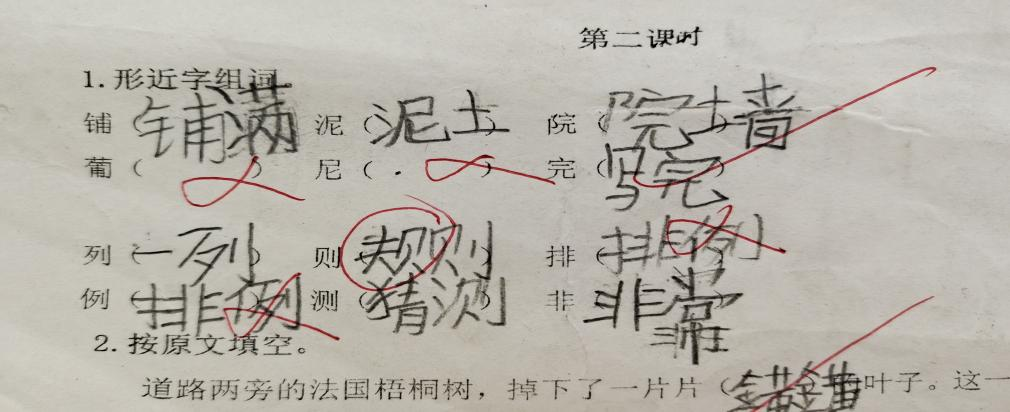 第二课时
1.形近字组词
铺(铺满) 泥(泥土) 院(院土墙)
葡( ) 尼( . ) 完(写完)
列(一列) 则(规则) 排(排例)
例(排例) 测(猜测) 非(非常)
2.按原文填空。
道路两旁的法国梧桐树，掉下了一片片( 的叶子。这一